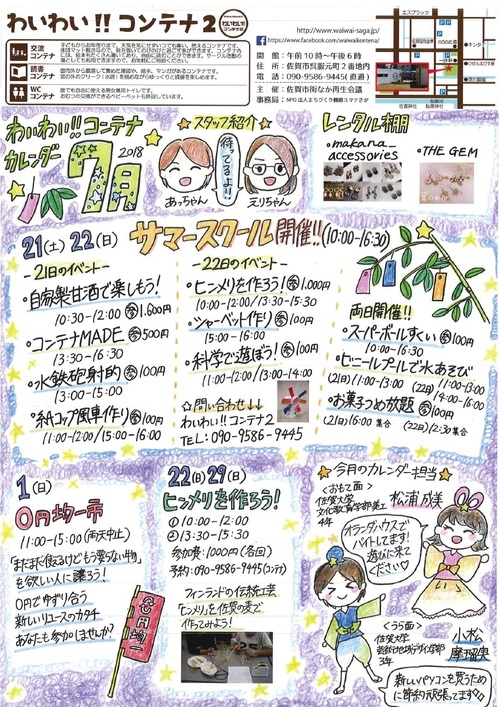 わいわい!!コンテナ2
わいわい!!コンテナ2
交流コンテナ
読書コンテナ
WCコンテナ
http://www.waiwai-saga.jp/
https://www.facebook.com/waiwaikontena/
開催：午前10時～午後6時
住所：佐賀市呉服元町2番地内
電話：090-9586-9445(直通)
主催：佐賀市街なか再生会議
事務局：NPO法人まちづくり機構ユマニテさが
エスプラッツ
わいわい!!コンテナ
カレンダー
7月
2018
☆スタッフ紹介☆
待ってるよ!!
あっちゃん
えりちゃん
レンタル棚
・makana_
accessories
・THE GEM
21(土)22(日) サマースクール開催!!(10:00-16:30)
-21日のイベント-
・自家製甘酒で楽しもう!
10:30-12:00 参1,600円
・コンテナMADE 参500円
13:30-16:30
・水鉄砲射的 参100円
13:00-15:00
・紙コップ風車作り 参100円
11:00-12:00/15:00-16:00
-22日のイベント-
・ヒンメリを作ろう! 参1,000円
10:00-12:00/13:30-15:30
・シャーベット作り 参100円
15:00-16:00
・科学で遊ぼう! 参100円
11:00-12:00/13:00-14:00
☆問い合わせ↓↓
わいわい!!コンテナ2
TEL:090-9586-9445
両日開催!!
・スーパーボールすくい 参100円
10:00-16:30
・ビニールプールで水あそび
(21日)11:00-13:00 (22日)11:00-13:00
14:00-16:00
・お菓子つめ放題 参100円
(21日)16:00集合 (22日)12:30集合
1(日)
0円均一市
11:00-15:00(雨天中止)
「まだまだ使えるけどもう要らない物」
を欲しい人に譲ろう!
0円でゆずり合う
新しいリユースのカタチ
あなたも参加しませんか?
0円均一
22(日)29(日)
ヒンメリを作ろう!
①10:00-12:00
②13:30-15:30
参加費:1000円(各回)
予約:090-9586-9445(コンテナ)
フィンランドの伝統工芸
「ヒンメリ」を佐賀の麦で
作ってみよう!
☆今月のカレンダー担当☆
<おもて面>
佐賀大学
文化教育学部美工
4年
松浦成美
オランダハウスで
バイトしてます!
遊びに来て
ください♡
<うら面>
佐賀大学
芸術地域デザイン学部
3年
小松
摩瑠実
新しいパソコンを買うため
に節約頑張ってます